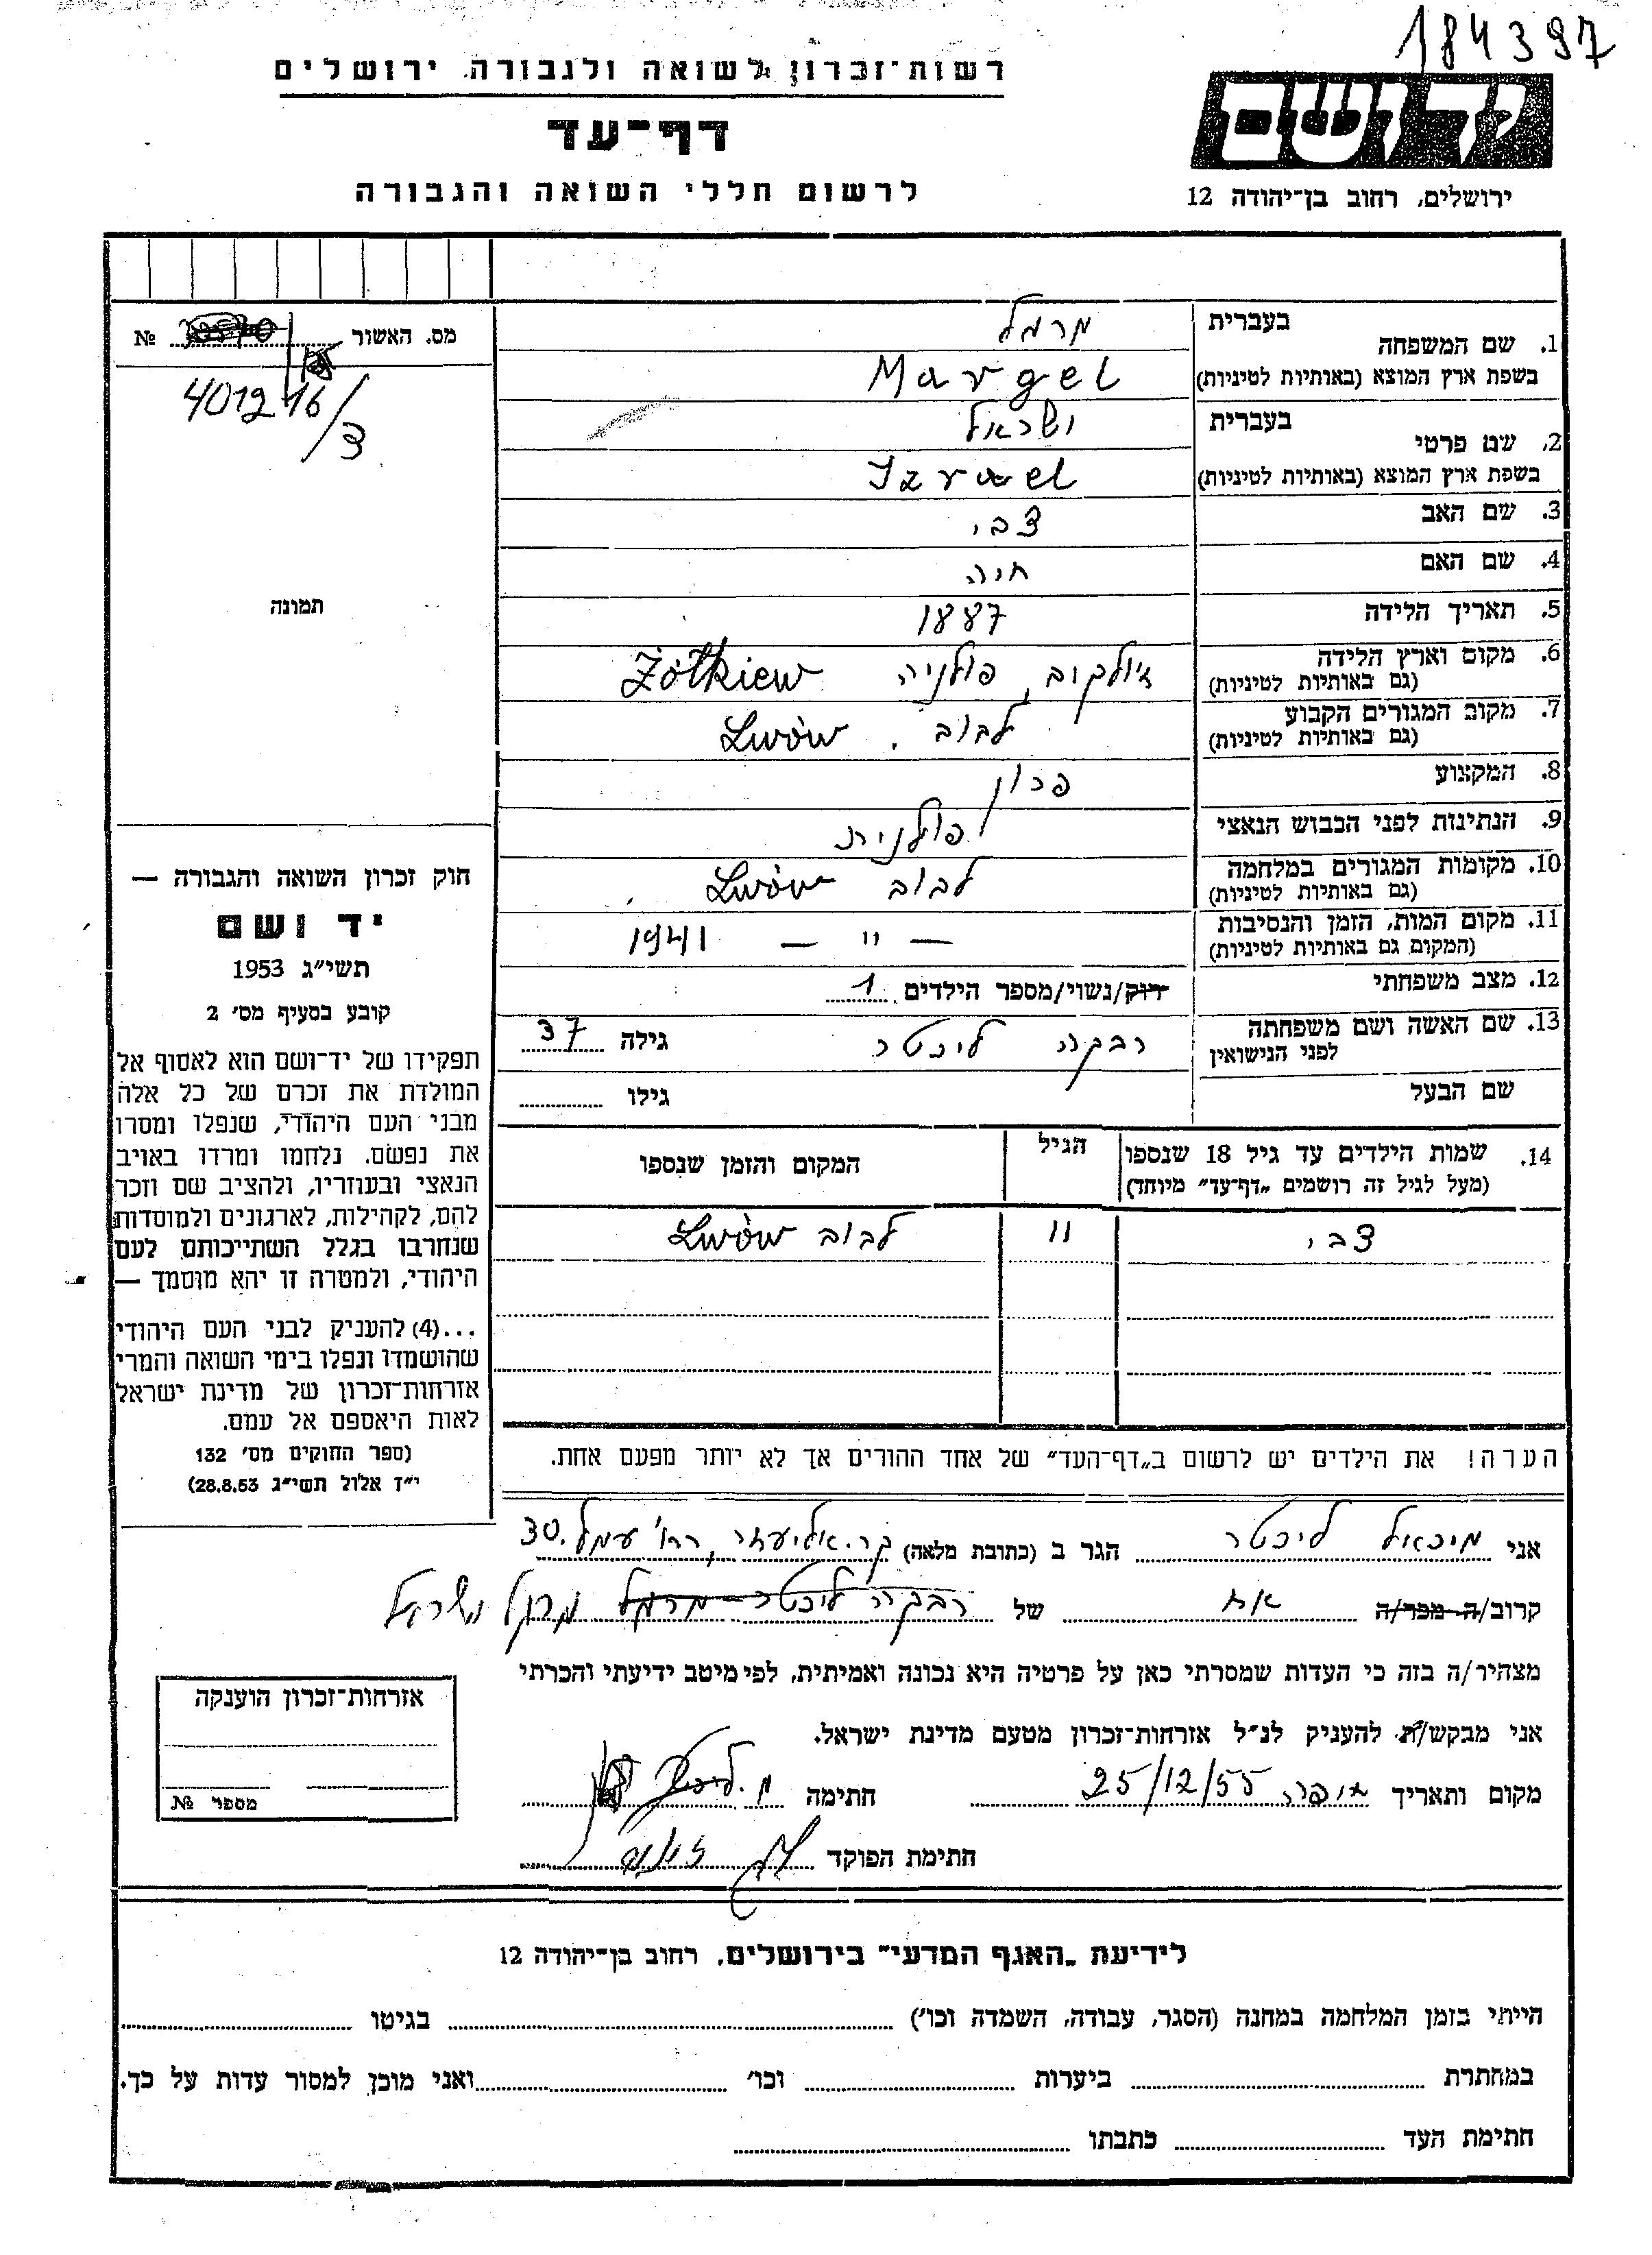 184397
רשות־זכרון לשואה ולגבורה, ירושלים
דף־עד
לרשום חללי השואה והגבורה
יד ושם
ירושלים, רחוב בן־יהודה 12
מס. האשור № 
401216/3
תמונה
1. שם המשפחה בעברית מרגל
בשפת ארץ המוצא (באותיות לטיניות) Margel
2. שם פרטי בעברית ישראל
בשפת ארץ המוצא (באותיות לטיניות) Izrael
3. שם האב צבי
4. שם האם חיה
5. תאריך הלידה 1887
6. מקום וארץ הלידה (גם באותיות לטיניות) ז'ולקוב, פולניה Żółkiew
7. מקום המגורים הקבוע (גם באותיות לטיניות) לבוב. Lwów
8. המקצוע
9. הנתינות לפני הכבוש הנאצי פולנית
10. מקומות המגורים במלחמה (גם באותיות לטיניות) לבוב Lwów
11. מקום המות, הזמן והנסיבות (המקום גם באותיות לטיניות) — " — 1941
12. מצב משפחתי רוק/נשוי/מספר הילדים 1
13. שם האשה ושם משפחתה לפני הנישואין רבקה ליכטר גילה 37
שם הבעל גילו
14. שמות הילדים עד גיל 18 שנספו (מעל לגיל זה רושמים „דף־עד" מיוחד) הגיל המקום והזמן שנספו
צבי 11 לבוב Lwów
הערה! את הילדים יש לרשום ב„דף־העד" של אחד ההורים אך לא יותר מפעם אחת.
חוק זכרון השואה והגבורה —
יד ושם
תשי"ג 1953
קובע בסעיף מס' 2
תפקידו של יד־ושם הוא לאסוף אל
המולדת את זכרם של כל אלה
מבני העם היהודי, שנפלו ומסרו
את נפשם, נלחמו ומרדו באויב
הנאצי ובעוזריו, ולהציב שם וזכר
להם, לקהילות, לארגונים ולמוסדות
שנחרבו בגלל השתייכותם לעם
היהודי, ולמטרה זו יהא מוסמך —
...(4) להעניק לבני העם היהודי
שהושמדו ונפלו בימי השואה והמרי
אזרחות־זכרון של מדינת ישראל
לאות היאספם אל עמם.
(ספר החוקים מס' 132
י"ז אלול תשי"ג 28.8.53)
אני מיכאל ליכטר הגר ב (כתובת מלאה) קר. אליעזר, רח' עמל 30.
קרוב/ה מכר/ה אח של רבקה ליכטר מרגל מרגל ישראל
מצהיר/ה בזה כי העדות שמסרתי כאן על פרטיה היא נכונה ואמיתית, לפי מיטב ידיעתי והכרתי
אני מבקש/ת להעניק לנ"ל אזרחות־זכרון מטעם מדינת ישראל.
מקום ותאריך 25/12/55 חתימה מ. ליכטר
חתימת הפוקד
אזרחות־זכרון הוענקה
מספר №
לידיעת „האגף המדעי" בירושלים, רחוב בן־יהודה 12
הייתי בזמן המלחמה במחנה (הסגר, עבודה, השמדה וכו') בגיטו
במחתרת ביערות וכו' ואני מוכן למסור עדות על כך.
חתימת העד כתבתו